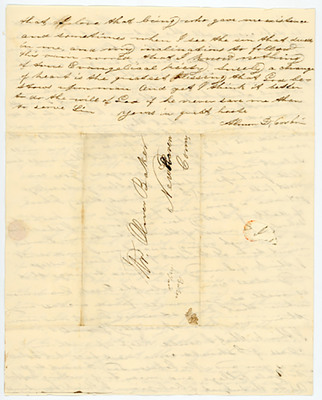 that I love that being who gave me existence
and sometimes when I see the sin that dwells
in me, and my inclinations to follow
his own that I know nothing
of true Evangelical piety. Indeed a change
of heart is the greatest blessing that God has
stowed upon man And yet I think it better
to do the will of God if he never save me than
to serve
Yours in great haste
Mr. Oliver Baker
New Haven
Conn